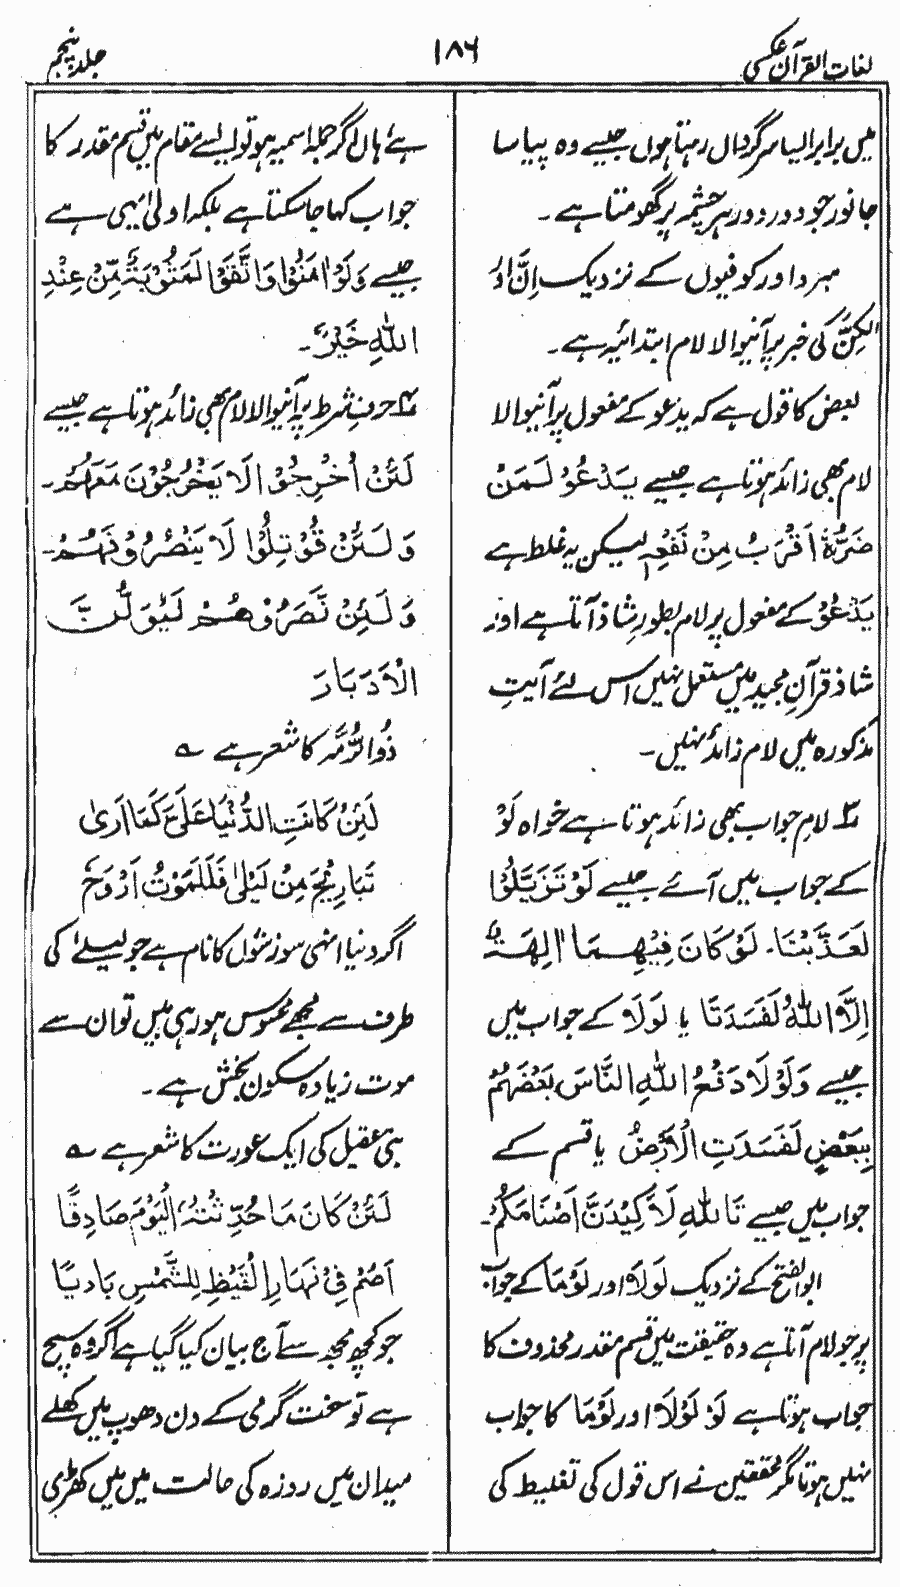 لغات القرآن عکسی
۱۸۶
جلد پنجم
میں برابر ایسا سرگرداں رہتا ہوں جیسے وہ پیاسا
جانور جو دور دور ہر چشمہ پر گھومتا ہے ۔
مبرد اور کوفیوں کے نزدیک اِنَّ اور
لٰکِنَّ کی خبر پر آنیوالا لام ابتدائیہ ہے ۔
بعض کا قول ہے کہ یدعو کے مفعول پر آنیوالا
لام بھی زائد ہوتا ہے جیسے یَدْعُوْ لَمَنْ
ضَرُّہٗ اَقْرَبُ مِنْ نَّفْعِہٖ لیکن یہ غلط ہے
یَدْعُوْ کے مفعول پر لام بطور شاذ آتا ہے اور
شاذ قرآنِ مجید میں مستعمل نہیں اس لئے آیتِ
مذکورہ میں لام زائد نہیں ۔
۳ لامِ جواب بھی زائد ہوتا ہے خواہ لَوْ
کے جواب میں آئے جیسے لَوْ تَزَیَّلُوْا
لَعَذَّبْنَا ۔ لَوْ کَانَ فِیْھِمَا اٰلِھَۃٌ
اِلَّا اللّٰہُ لَفَسَدَتَا یا لَوْلَا کے جواب میں
جیسے وَلَوْلَا دَفْعُ اللّٰہِ النَّاسَ بَعْضَھُمْ
بِبَعْضٍ لَّفَسَدَتِ الْاَرْضُ یا قسم کے
جواب میں جیسے تَاللّٰہِ لَاَکِیْدَنَّ اَصْنَامَکُمْ ۔
ابوالفتح کے نزدیک لَوْلَا اور لَوْمَا کے جواب
پر جو لام آتا ہے وہ حقیقت میں قسم مقدر محذوف کا
جواب ہوتا ہے لَوْ لَوْلَا اور لَوْمَا کا جواب
نہیں ہوتا مگر محققین نے اس قول کی تغلیط کی
ہے ہاں اگر جملہ اسمیہ ہو تو ایسے مقام میں قسم مقدر کا
جواب کہا جا سکتا ہے بلکہ اولیٰ یہی ہے
جیسے وَلَوْ اَنَّھُمْ اٰمَنُوْا وَاتَّقَوْا لَمَثُوْبَۃٌ مِّنْ عِنْدِ
اللّٰہِ خَیْرٌ ۔
۴ حرفِ شرط پر آنیوالا لام بھی زائد ہوتا ہے جیسے
لَئِنْ اُخْرِجُوْا لَا یَخْرُجُوْنَ مَعَھُمْ ۔
وَلَئِنْ قُوْتِلُوْا لَا یَنْصُرُوْنَھُمْ ۔
وَلَئِنْ نَّصَرُوْھُمْ لَیُوَلُّنَّ
الْاَدْبَارَ
ذُوالرُّمَّہ کا شعر ہے ؎
لَئِنْ کَانَتِ الدُّنْیَا عَلَیَّ کَمَا اَرٰی
تَبَارِیْحَ مِنْ لَیْلٰی فَلَلْمَوْتُ اَرْوَحُ
اگر دنیا انہی سوزشوں کا نام ہے جو لیلےٰ کی
طرف سے مجھے محسوس ہو رہی ہیں تو ان سے
موت زیادہ سکون بخش ہے ۔
بنی عقیل کی ایک عورت کا شعر ہے ؎
لَئِنْ کَانَ مَا حُدِّثْتُہُ الْیَوْمَ صَادِقًا
اَصُمْ فِیْ نَھَارِ الْقَیْظِ لِلشَّمْسِ بَادِیًا
جو کچھ مجھ سے آج بیان کیا گیا ہے اگر وہ سچ
ہے تو سخت گرمی کے دن دھوپ میں کھلے
میدان میں روزہ کی حالت میں میں کھڑی